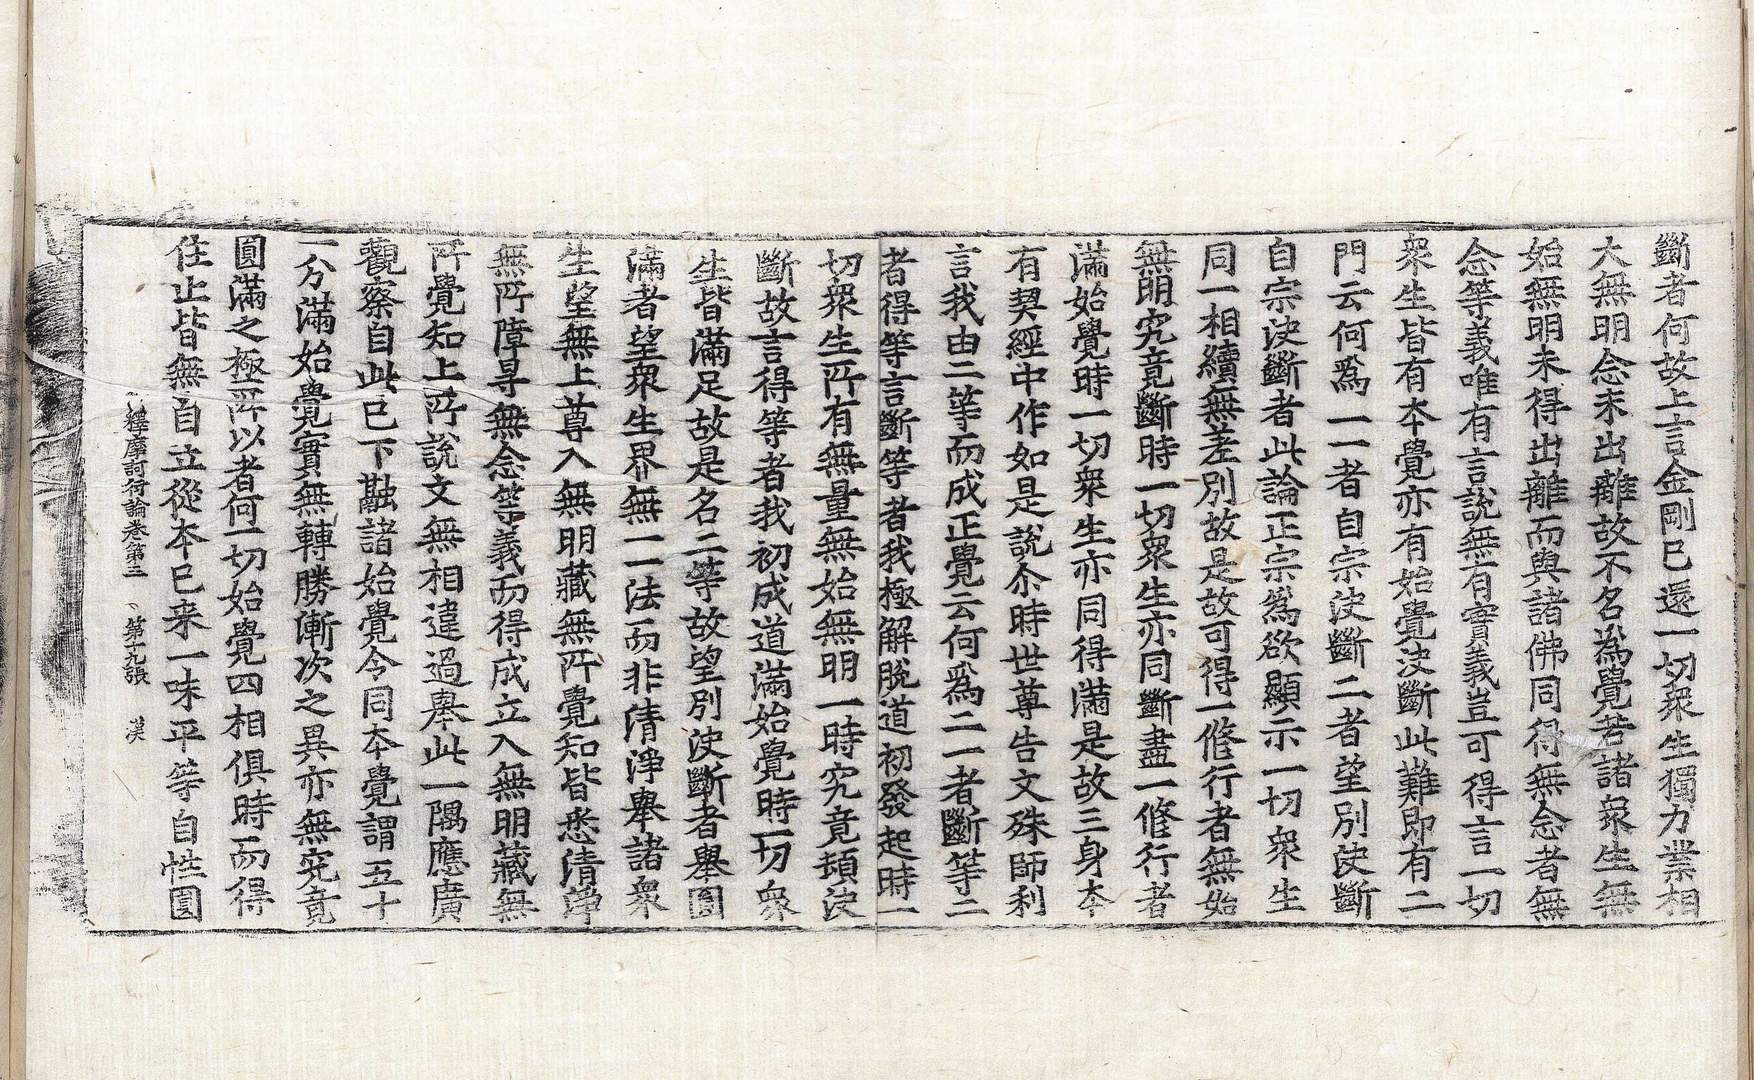 斷者何故上言金剛已還一切衆生獨力業相
大無明念未出離故不名為覺若諸衆生無
始無明未得出離而與諸佛同得無念者無
念等義唯有言說無有實義豈可得言一切
衆生皆有夲覺亦有始覺決斷此難即有二
門云何爲二一者自宗決斷二者望別決斷
自宗決斷者此論正宗為欲顯示一切衆生
同一相續無差別故是故可得一修行者無始
無明究竟斷時一切衆生亦同斷盡一修行者
滿始覺時一切衆生亦同得滿是故三身夲
有契經中作如是說尒時世尊告文殊師利
言我由二等而成正覺云何爲二一者斷等二
者得等言斷等者我極解脫道初發起時一
切衆生所有無量無始無明一時究竟頓決
斷故言得等者我初成道滿始覺時一切衆
生皆滿足故是名二等故望別決斷者舉圓
滿者望衆生界無一一法而非清淨舉諸衆
生望無上尊入無明藏無所覺知皆悉清淨
無所障㝵無念等義而得成立入無明藏無
所覺知上所說文無相違過舉此一隅應廣
觀察自此已下融諸始覺令同夲覺謂五十
一分滿始覺實無轉勝漸次之異亦無究竟
圓滿之極所以者何一切始覺四相俱時而得
住止皆無自立從夲已来一味平等自性圓
釋摩訶衍論卷第三 第十九張 漢